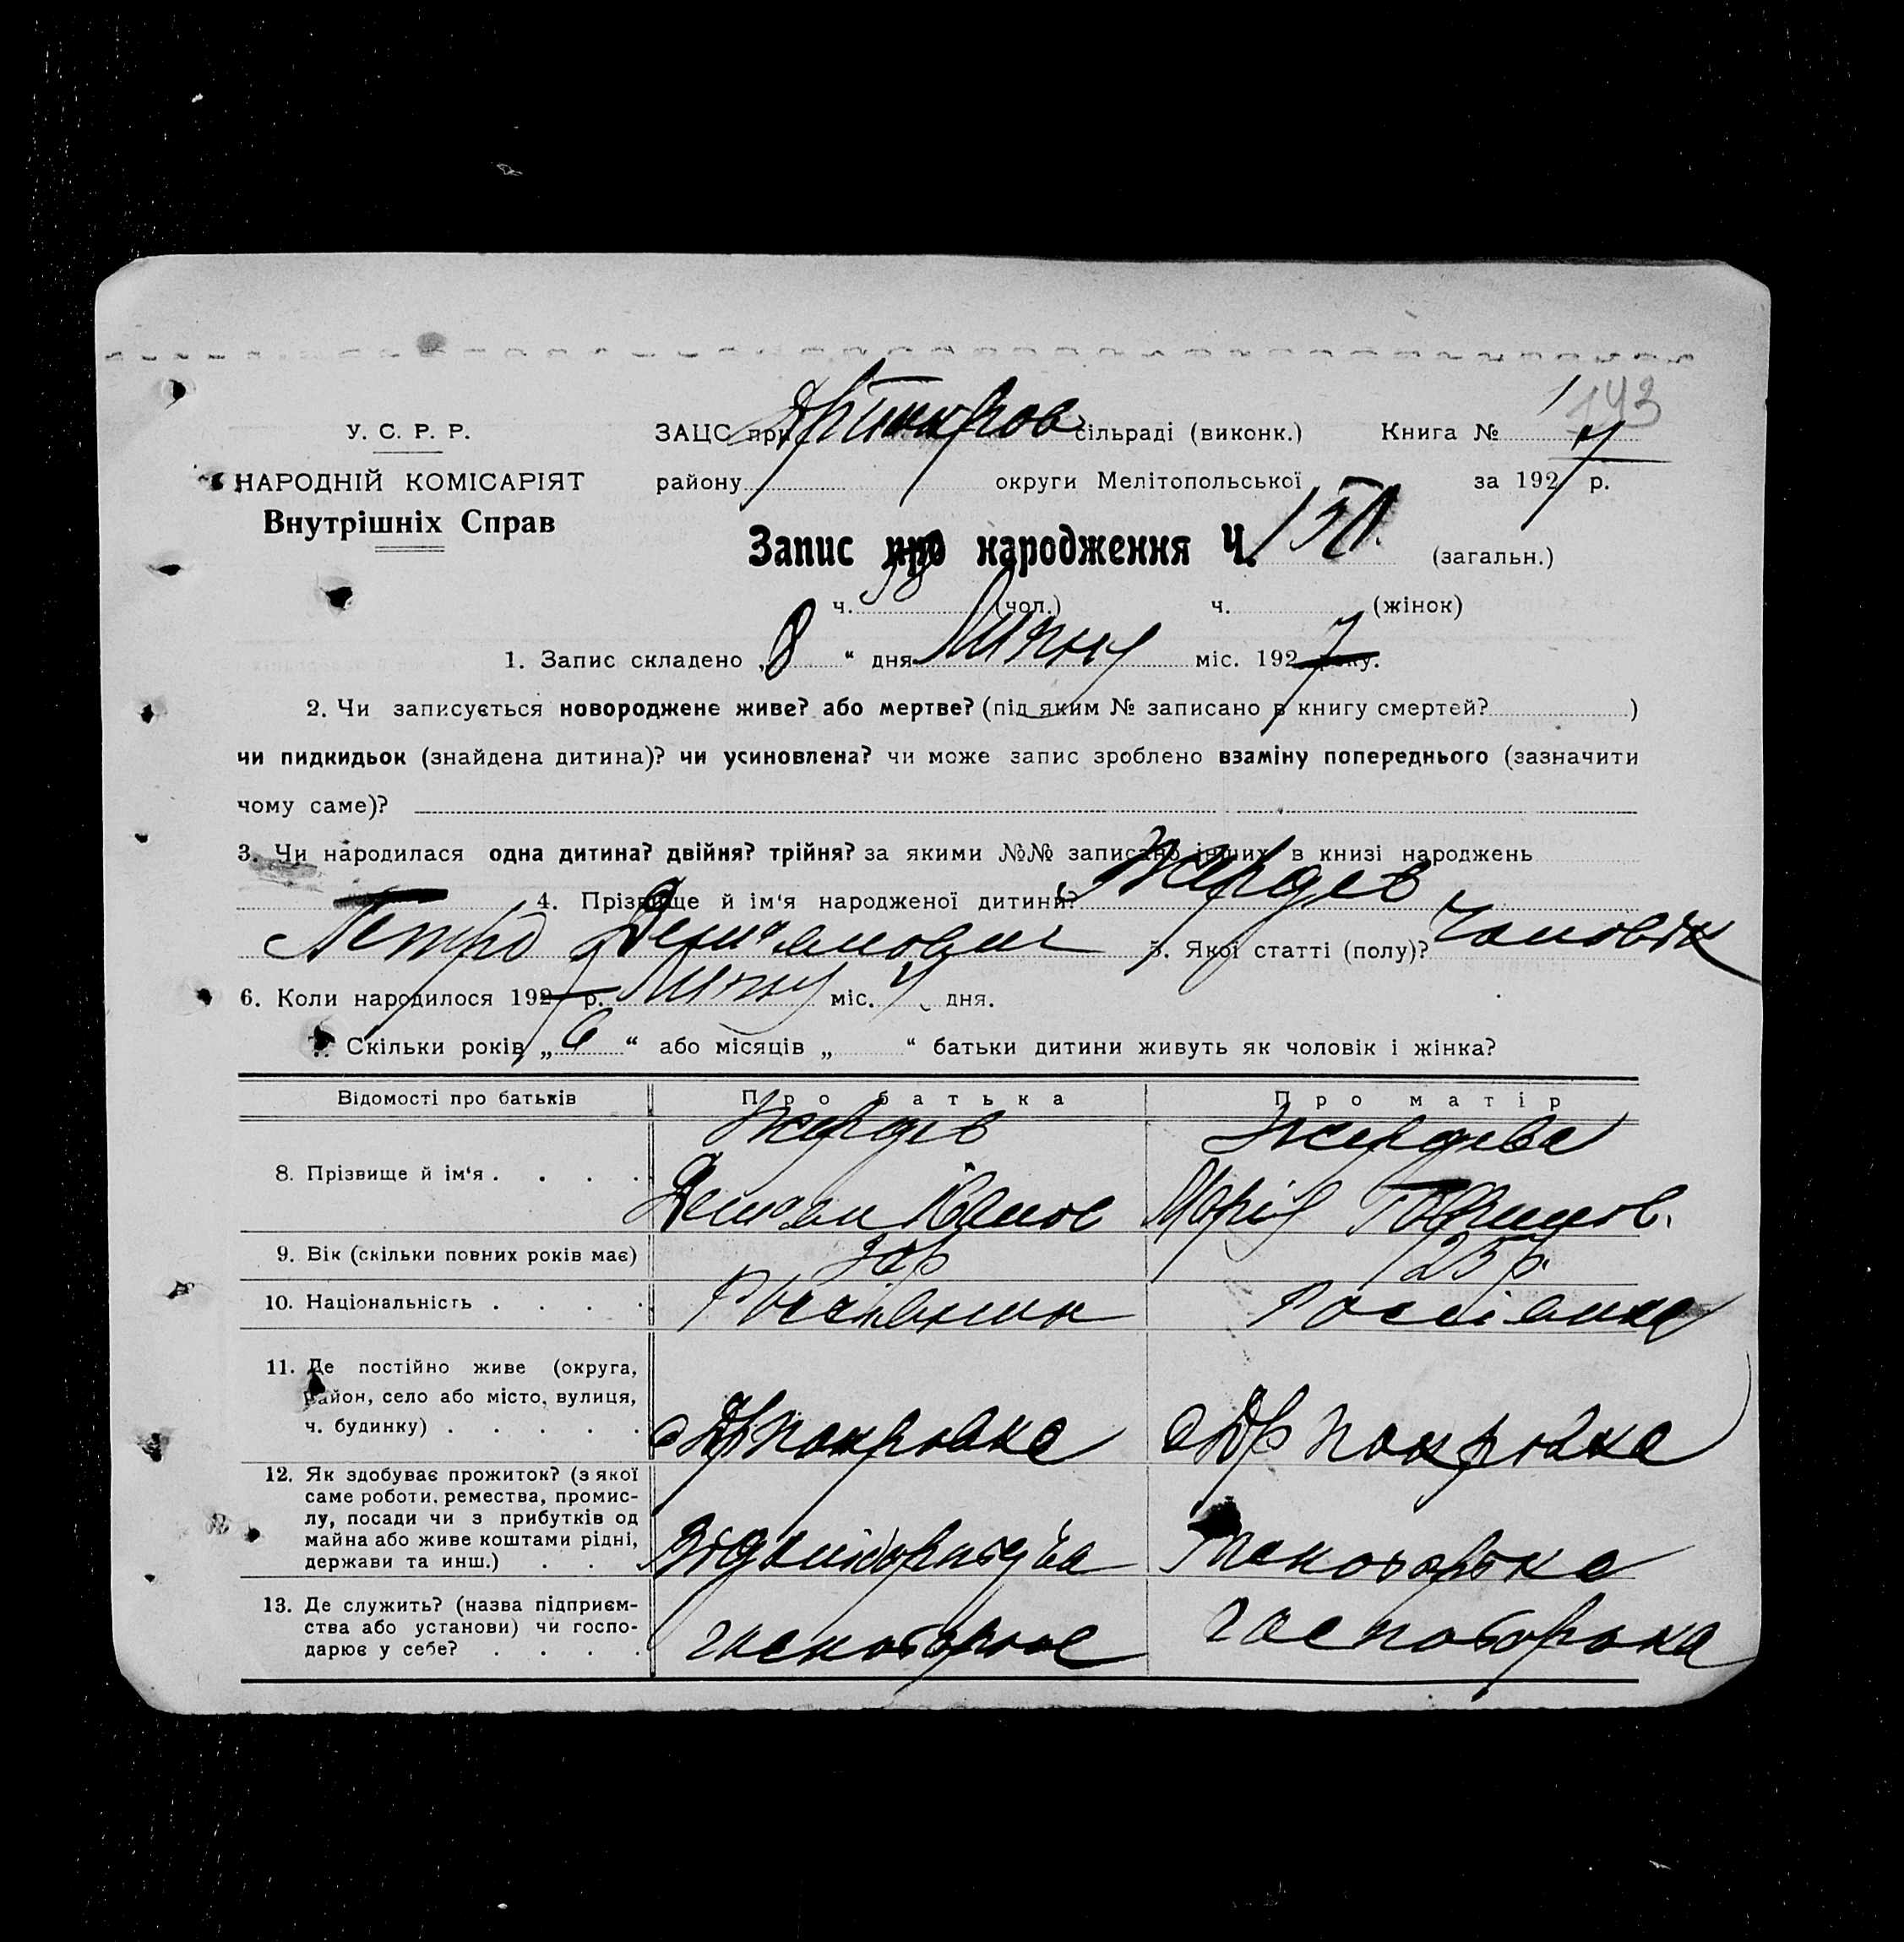 193
У. С. Р. Р. ЗАЦС при сільраді (виконк.) Книга №
НАРОДНІЙ КОМІСАРІЯТ району округи Мелітопольської за 1927 р.
Внутрішніх Справ
Запис про народження Ч. (загальн.)
ч. (чол.) ч. (жінок)
1. Запис складено „8“ дня Липня міс. 1927 року.
2. Чи записується новороджене живе? або мертве? (під яким № записано в книгу смертей? )
чи пидкидьок (знайдена дитина)? чи усиновлена? чи може запис зроблено взаміну попереднього (зазначити
чому саме)?
3. Чи народилася одна дитина? двійня? трійня? за якими №№ записано інших в книзі народжень
4. Прізвище й ім‘я народженої дитини? Жердєв
Петро Демianович 5. Якої статті (полу)? Чоловік
6. Коли народилося 1927 р. Липня міс. дня.
7. Скільки років „6“ або місяців „ “ батьки дитини живуть як чоловік і жінка?
Відомості про батьків Про батька Про матір
8. Прізвище й ім‘я . . . . Жердєв Жердєва
Демian Іванов Марія
9. Вік (скільки повних років має) 25 р.
10. Національність . . . . Росіянин Росіянка
11. Де постійно живе (округа,
район, село або місто, вулиця,
ч. будинку) . . . . . с Др покровка с Др покровка
12. Як здобуває прожиток? (з якої
саме роботи, ремества, промис-
лу, посади чи з прибутків од
майна або живе коштами рідні,
держави та инш.) . .
13. Де служить? (назва підприєм-
ства або установи) чи госпо-
дарює у себе? . . . .